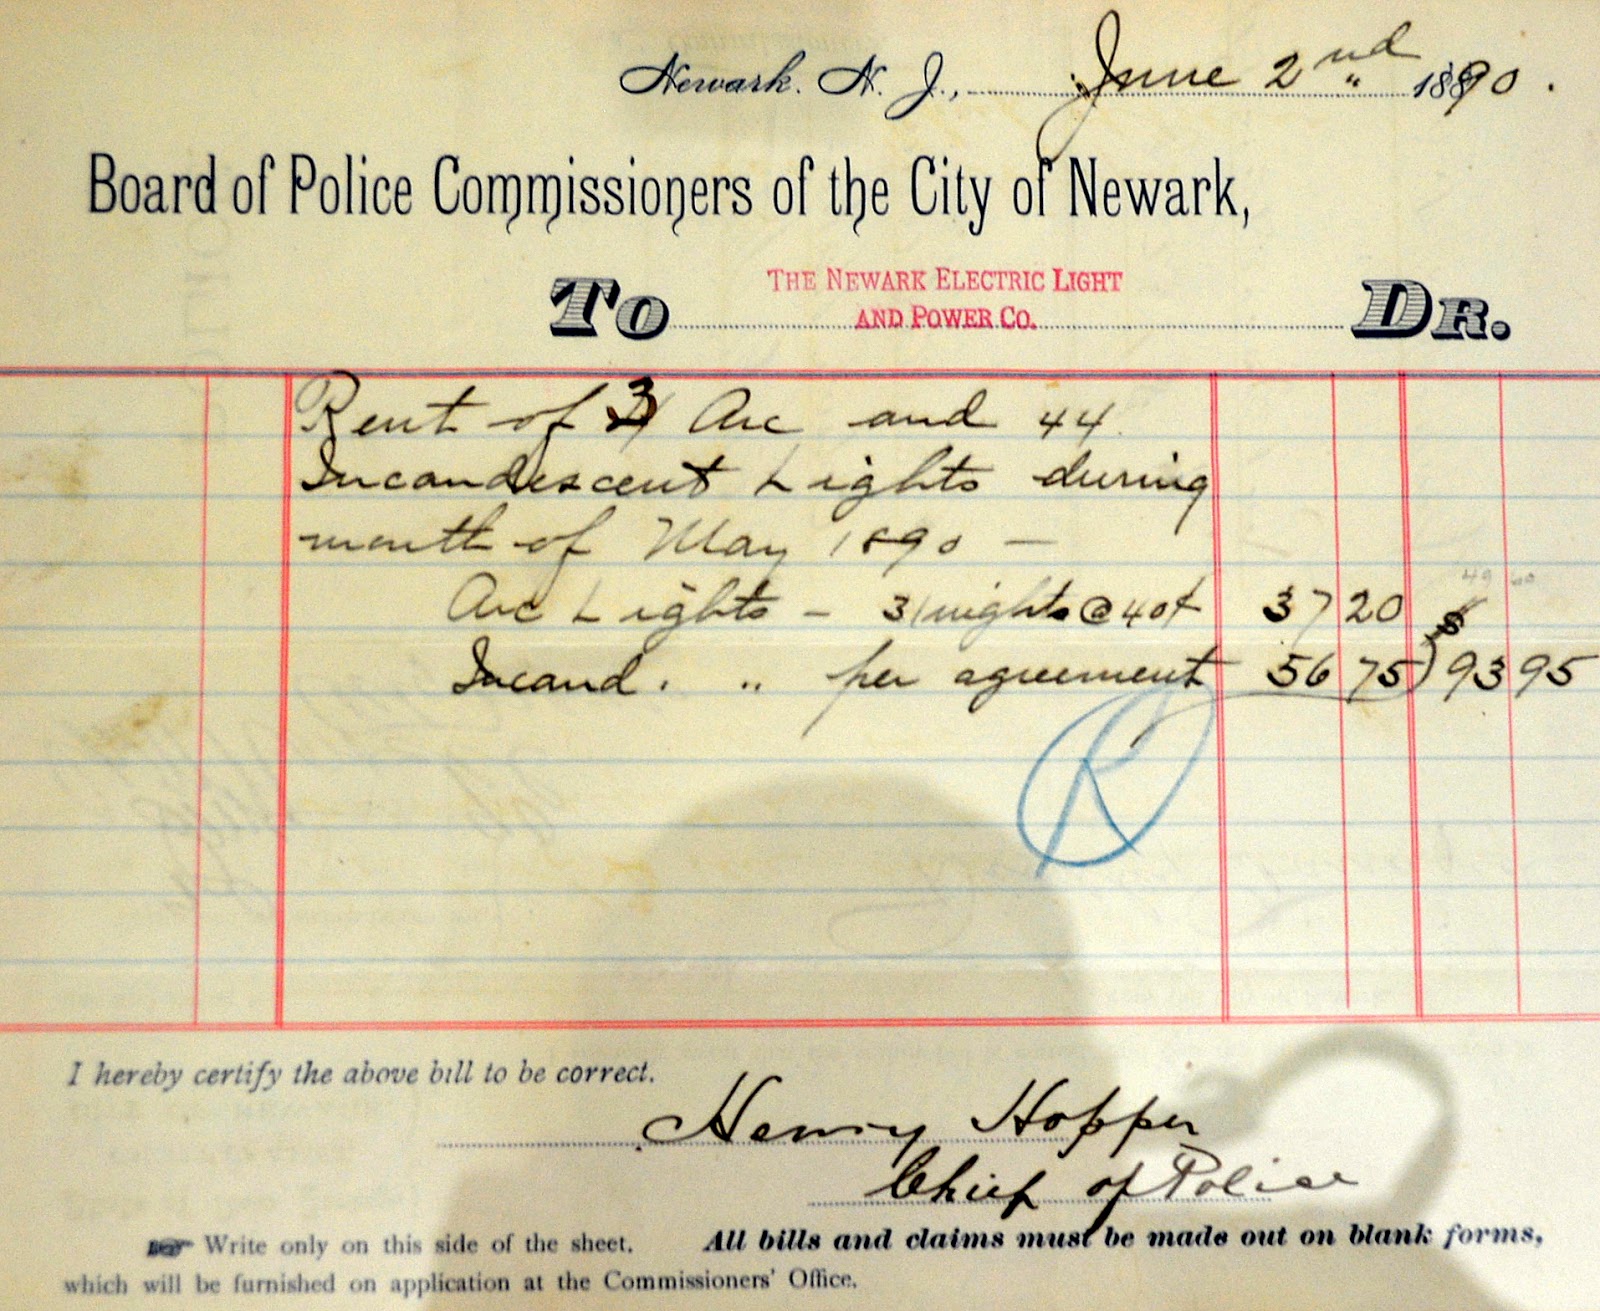 Newark, N. J., June 2nd 1890.
Board of Police Commissioners of the City of Newark,
THE NEWARK ELECTRIC LIGHT
AND POWER CO.
To Dr.
Rent of 3 Arc and 44
Incandescent Lights during
month of May 1890 —
49 60
Arc Lights - 31 nights @ 40¢ 37 20 $
Incand. " per agreement 56 75 ) 93 95
R
I hereby certify the above bill to be correct.
Henry Hopper
Chief of Police
☞ Write only on this side of the sheet. All bills and claims must be made out on blank forms,
which will be furnished on application at the Commissioners' Office.